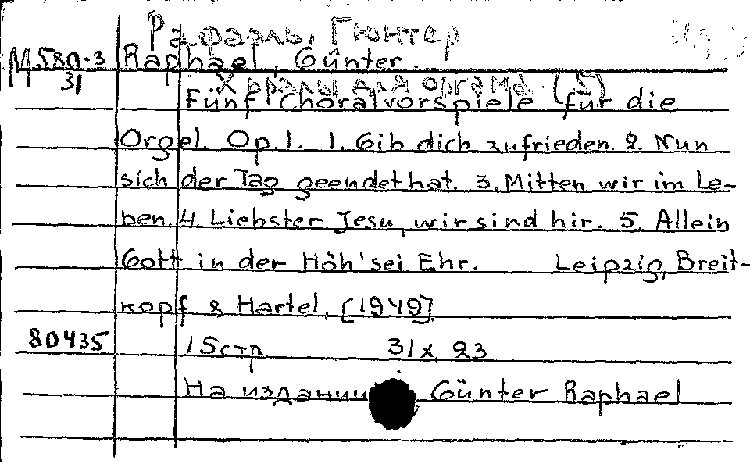 Рафаэль, Гюнтер
М580-3 Raphael, Günter.
31 Хоралы для органа (5)
Fünf Choralvorspiele für die
Orgel. Op. 1. 1. Gib dich zufrieden. 2. Nun
sich der Tag geendet hat. 3. Mitten wir im Le-
ben. 4. Liebster Jesu, wir sind hir. 5. Allein
Gott in der Höh' sei Ehr. Leipzig, Breit-
kopf & Hartel, [1949]
80435 15 стр 31 x 23
На издании: Günter Raphael